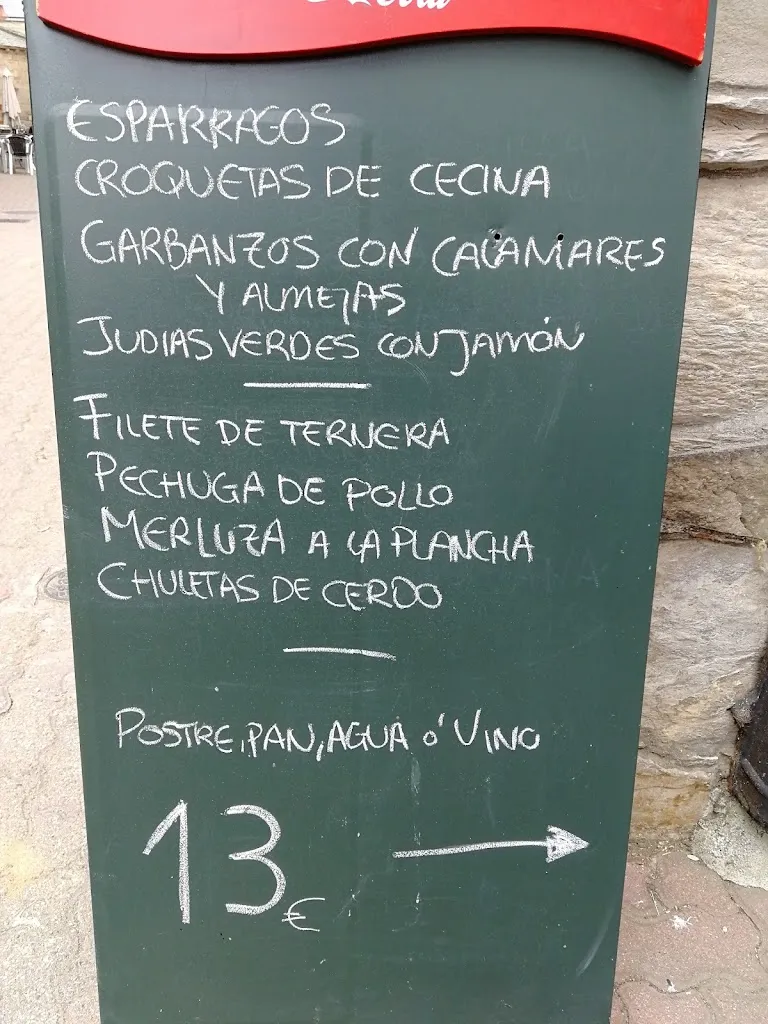 ESPARRAGOS
CROQUETAS DE CECINA
GARBANZOS CON CALAMARES
Y ALMEJAS
JUDIAS VERDES CON JAMÓN
FILETE DE TERNERA
PECHUGA DE POLLO
MERLUZA A LA PLANCHA
CHULETAS DE CERDO
POSTRE, PAN, AGUA ó VINO
13€